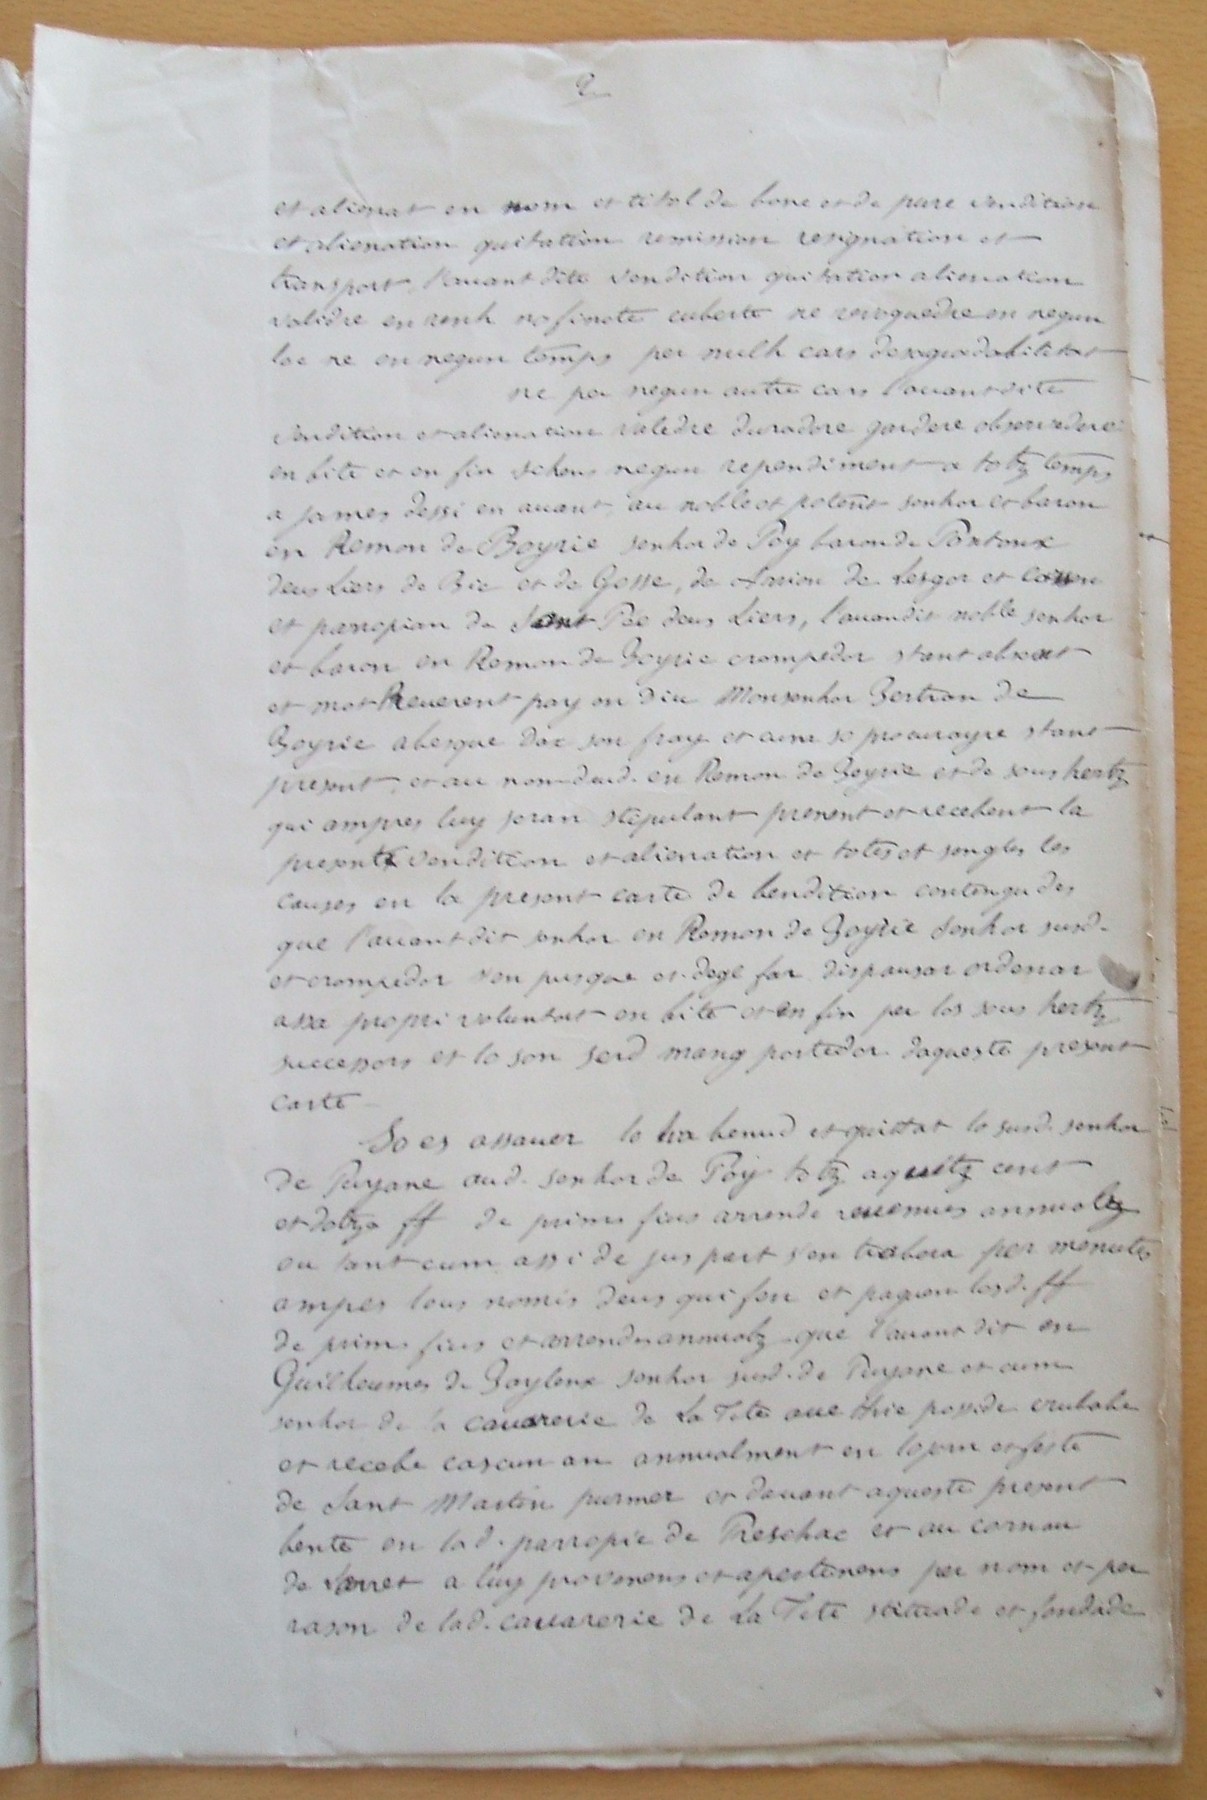 2
et alienat en nom et titol de bone et de pure vendition
et alienation quitation remission resignation et
transport, l'auant dite vendetion quitation alienation
validre en renh no finote cuberte ne reuoquedre en negun
loc ne en negun temps per nulh cars
ne per negun autre cars l'auantdite
vendition et alienation valedre duradore gardere observedere
en bite et en fin schens negun rependiment a totz temps
a james dessi en auant, au noble et potent senhor et baron
en Remon de Boyrie senhor de Poy baron de Pontonx
deus Liers de Bie et de Gosse, de Clarion de Lesgor et
et parropian de Sant Pée deus Liers, l'auandit noble senhor
et baron en Remon de Boyrie crompedor stant absent
et mot Reuerent pay en diu Monsenhor Bertran de
Boyrie abesque dax son fray et cum so procurayre stant
present, et au nom deud. en Remon de Boyrie et de sous hertz
qui ampres luy seran stipulant prenent et recebent la
present vendition et alienation et totes et sengles les
causes en la present carte de bendition contengudes
que l'auant dit senhor en Remon de Boyrie senhor susd.
et crompedor s'en pusque et dege far dispausar ordenar
assa propri voluntat en bite et en fin per los sous hertz
successors et lo son serd mang portedor daqueste present
carte
So es assauer lo ha benud et quittat lo susd. senhor
de Puyane aud. senhor de Poy totz aquetz cent
et dotze ff de prims fius arrende reuenues annualz
ou tant cum assi de jus part s'en trabera per menutes
ampres lous nomis deus qui fen et paguen losd. ff
de prims fius et arrendes annualz que l'auant dit en
Guilhaumes de Bayleux senhor susd. de Puyane et cum
senhor de la cauarerie de La Tete aue thie posside crubabe
et recebe cascun an annualment en lo jorn et feste
de Sant Martin purmer et dauant aqueste present
bente en lad. parropie de Preschac et au cornau
de Sarret a luy provenens et apertenens per nom et per
rason de lad. cauarerie de La Tete stituade et fondade